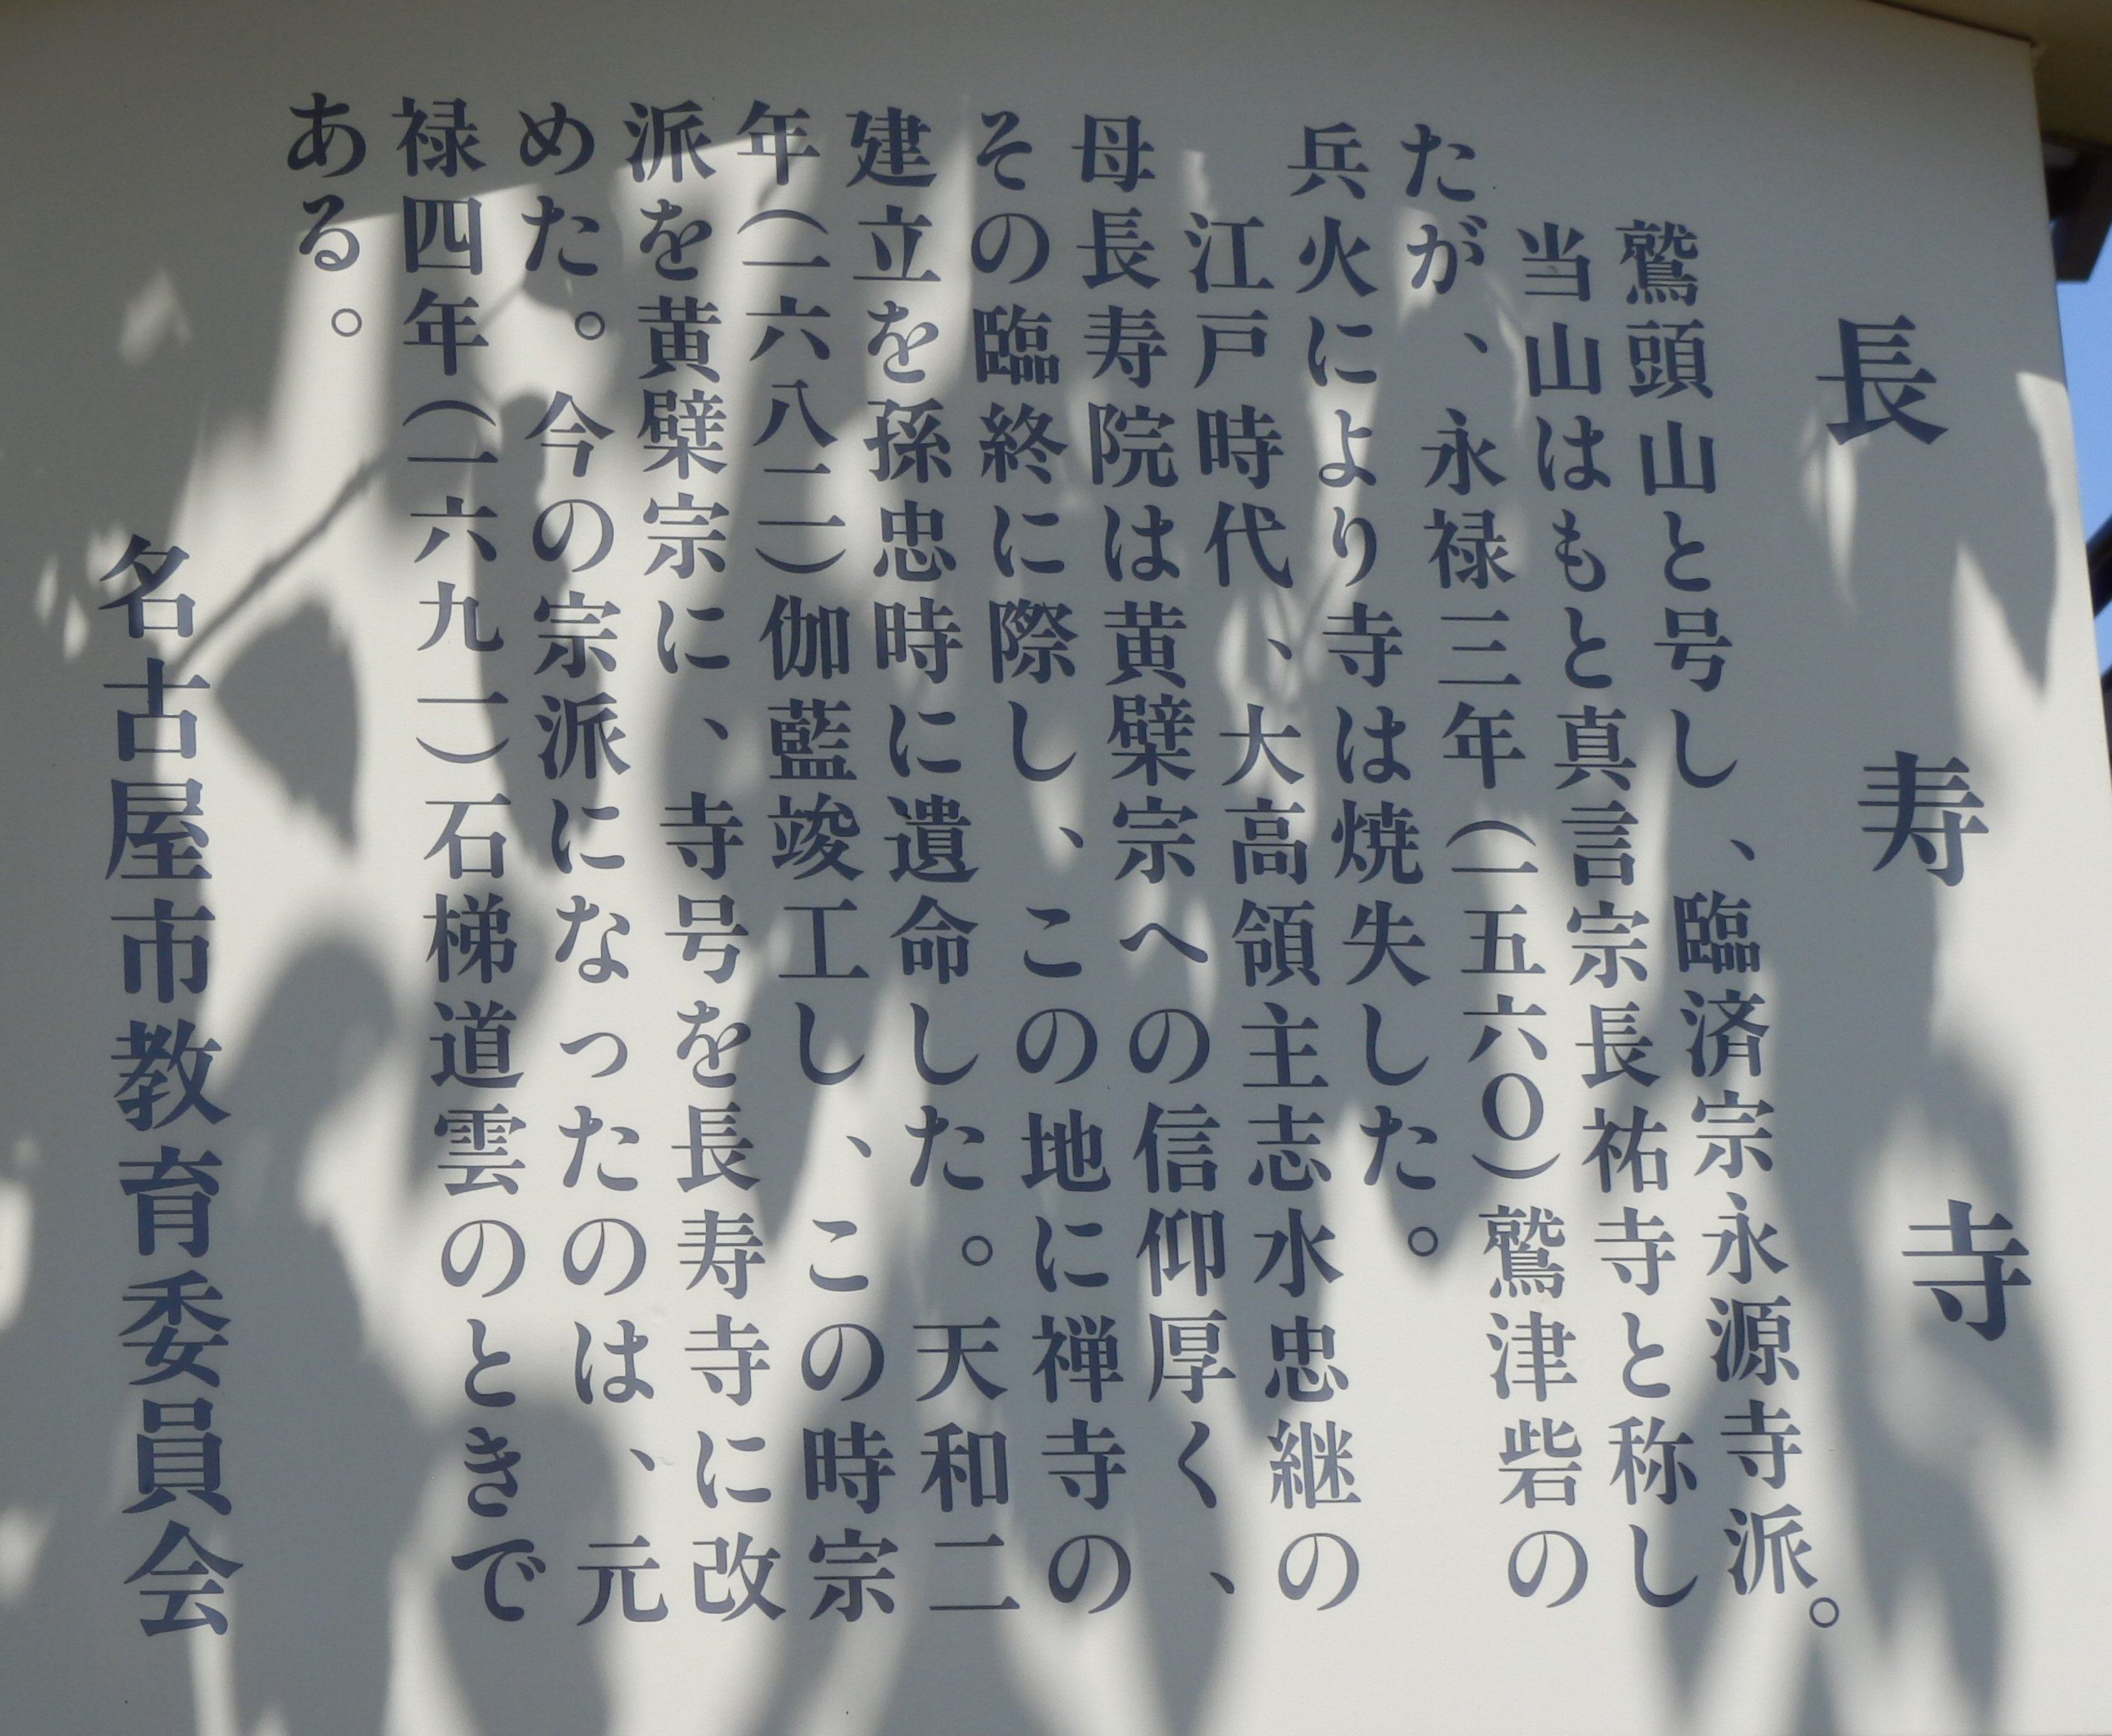 長寿寺
鷲頭山と号し、臨済宗永源寺派。
当山はもと真言宗長祐寺と称し
たが、永禄三年(一五六〇)鷲津砦の
兵火により寺は焼失した。
江戸時代、大高領主志水忠継の
母長寿院は黄檗宗への信仰厚く、
その臨終に際し、この地に禅寺の
建立を孫忠時に遺命した。天和二
年(一六八二)伽藍竣工し、この時宗
派を黄檗宗に、寺号を長寿寺に改
めた。今の宗派になったのは、元
禄四年(一六九一)石梯道雲のときで
ある。
名古屋市教育委員会